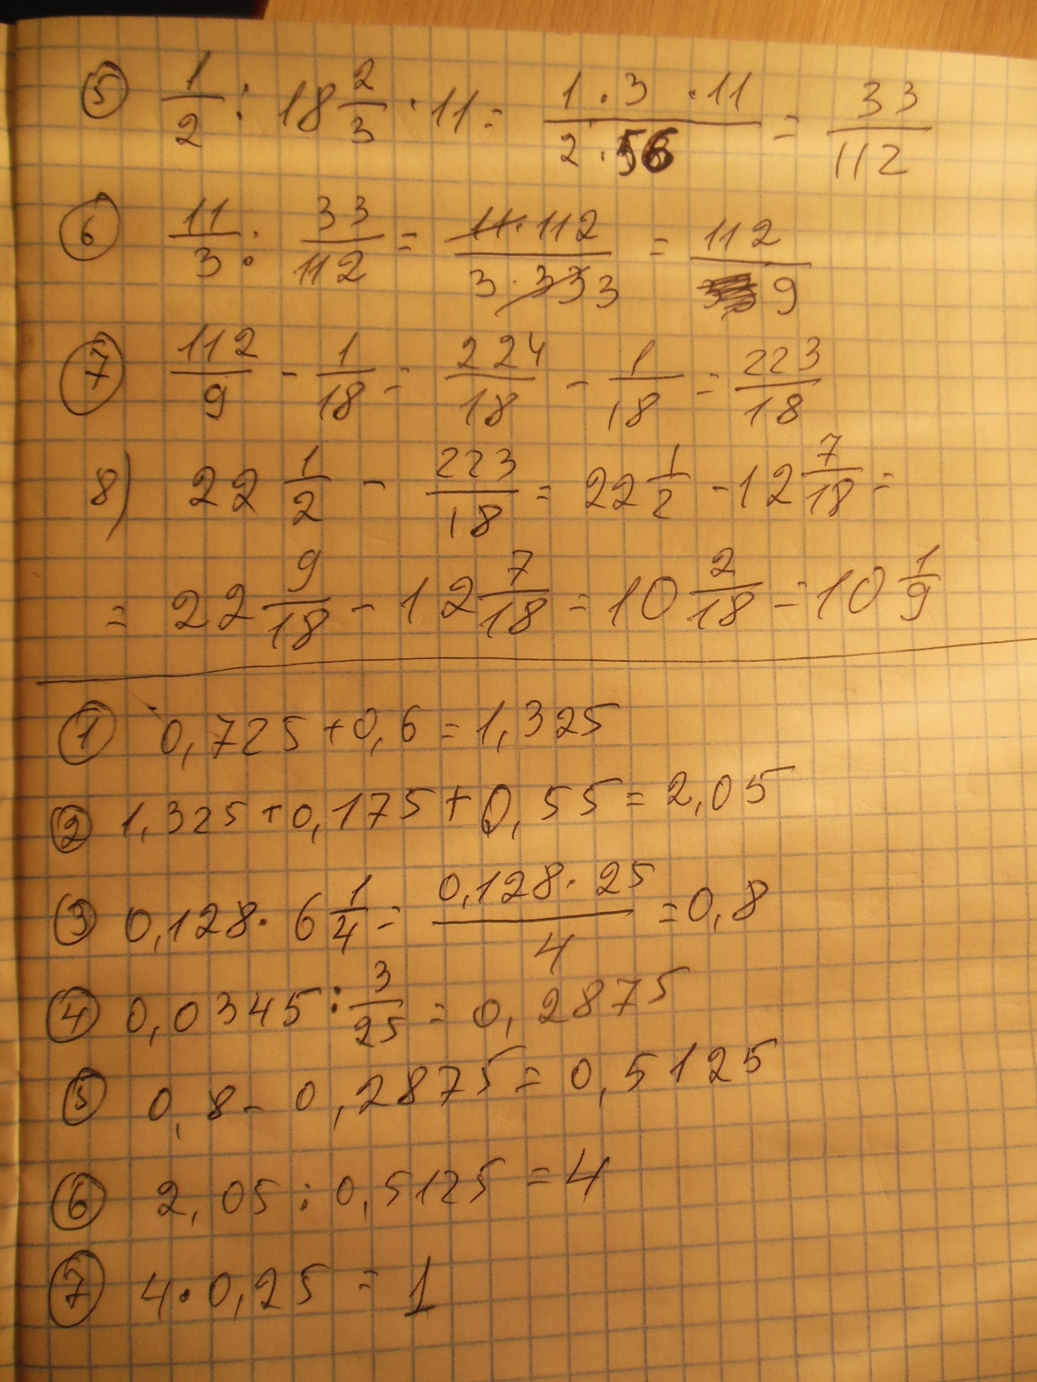 ⑤ 1/2 : 18 2/3 · 11 = (1 · 3 · 11)/(2 · 56) = 33/112
⑥ 11/3 : 33/112 = (11 · 112)/(3 · 33 3) = 112/9
⑦ 112/9 - 1/18 = 224/18 - 1/18 = 223/18
8) 22 1/2 - 223/18 = 22 1/2 - 12 7/18 =
= 22 9/18 - 12 7/18 = 10 2/18 = 10 1/9
① 0,725 + 0,6 = 1,325
② 1,325 + 0,175 + 0,55 = 2,05
③ 0,128 · 6 1/4 = (0,128 · 25)/4 = 0,8
④ 0,0345 : 3/25 = 0,2875
⑤ 0,8 - 0,2875 = 0,5125
⑥ 2,05 : 0,5125 = 4
⑦ 4 · 0,25 = 1